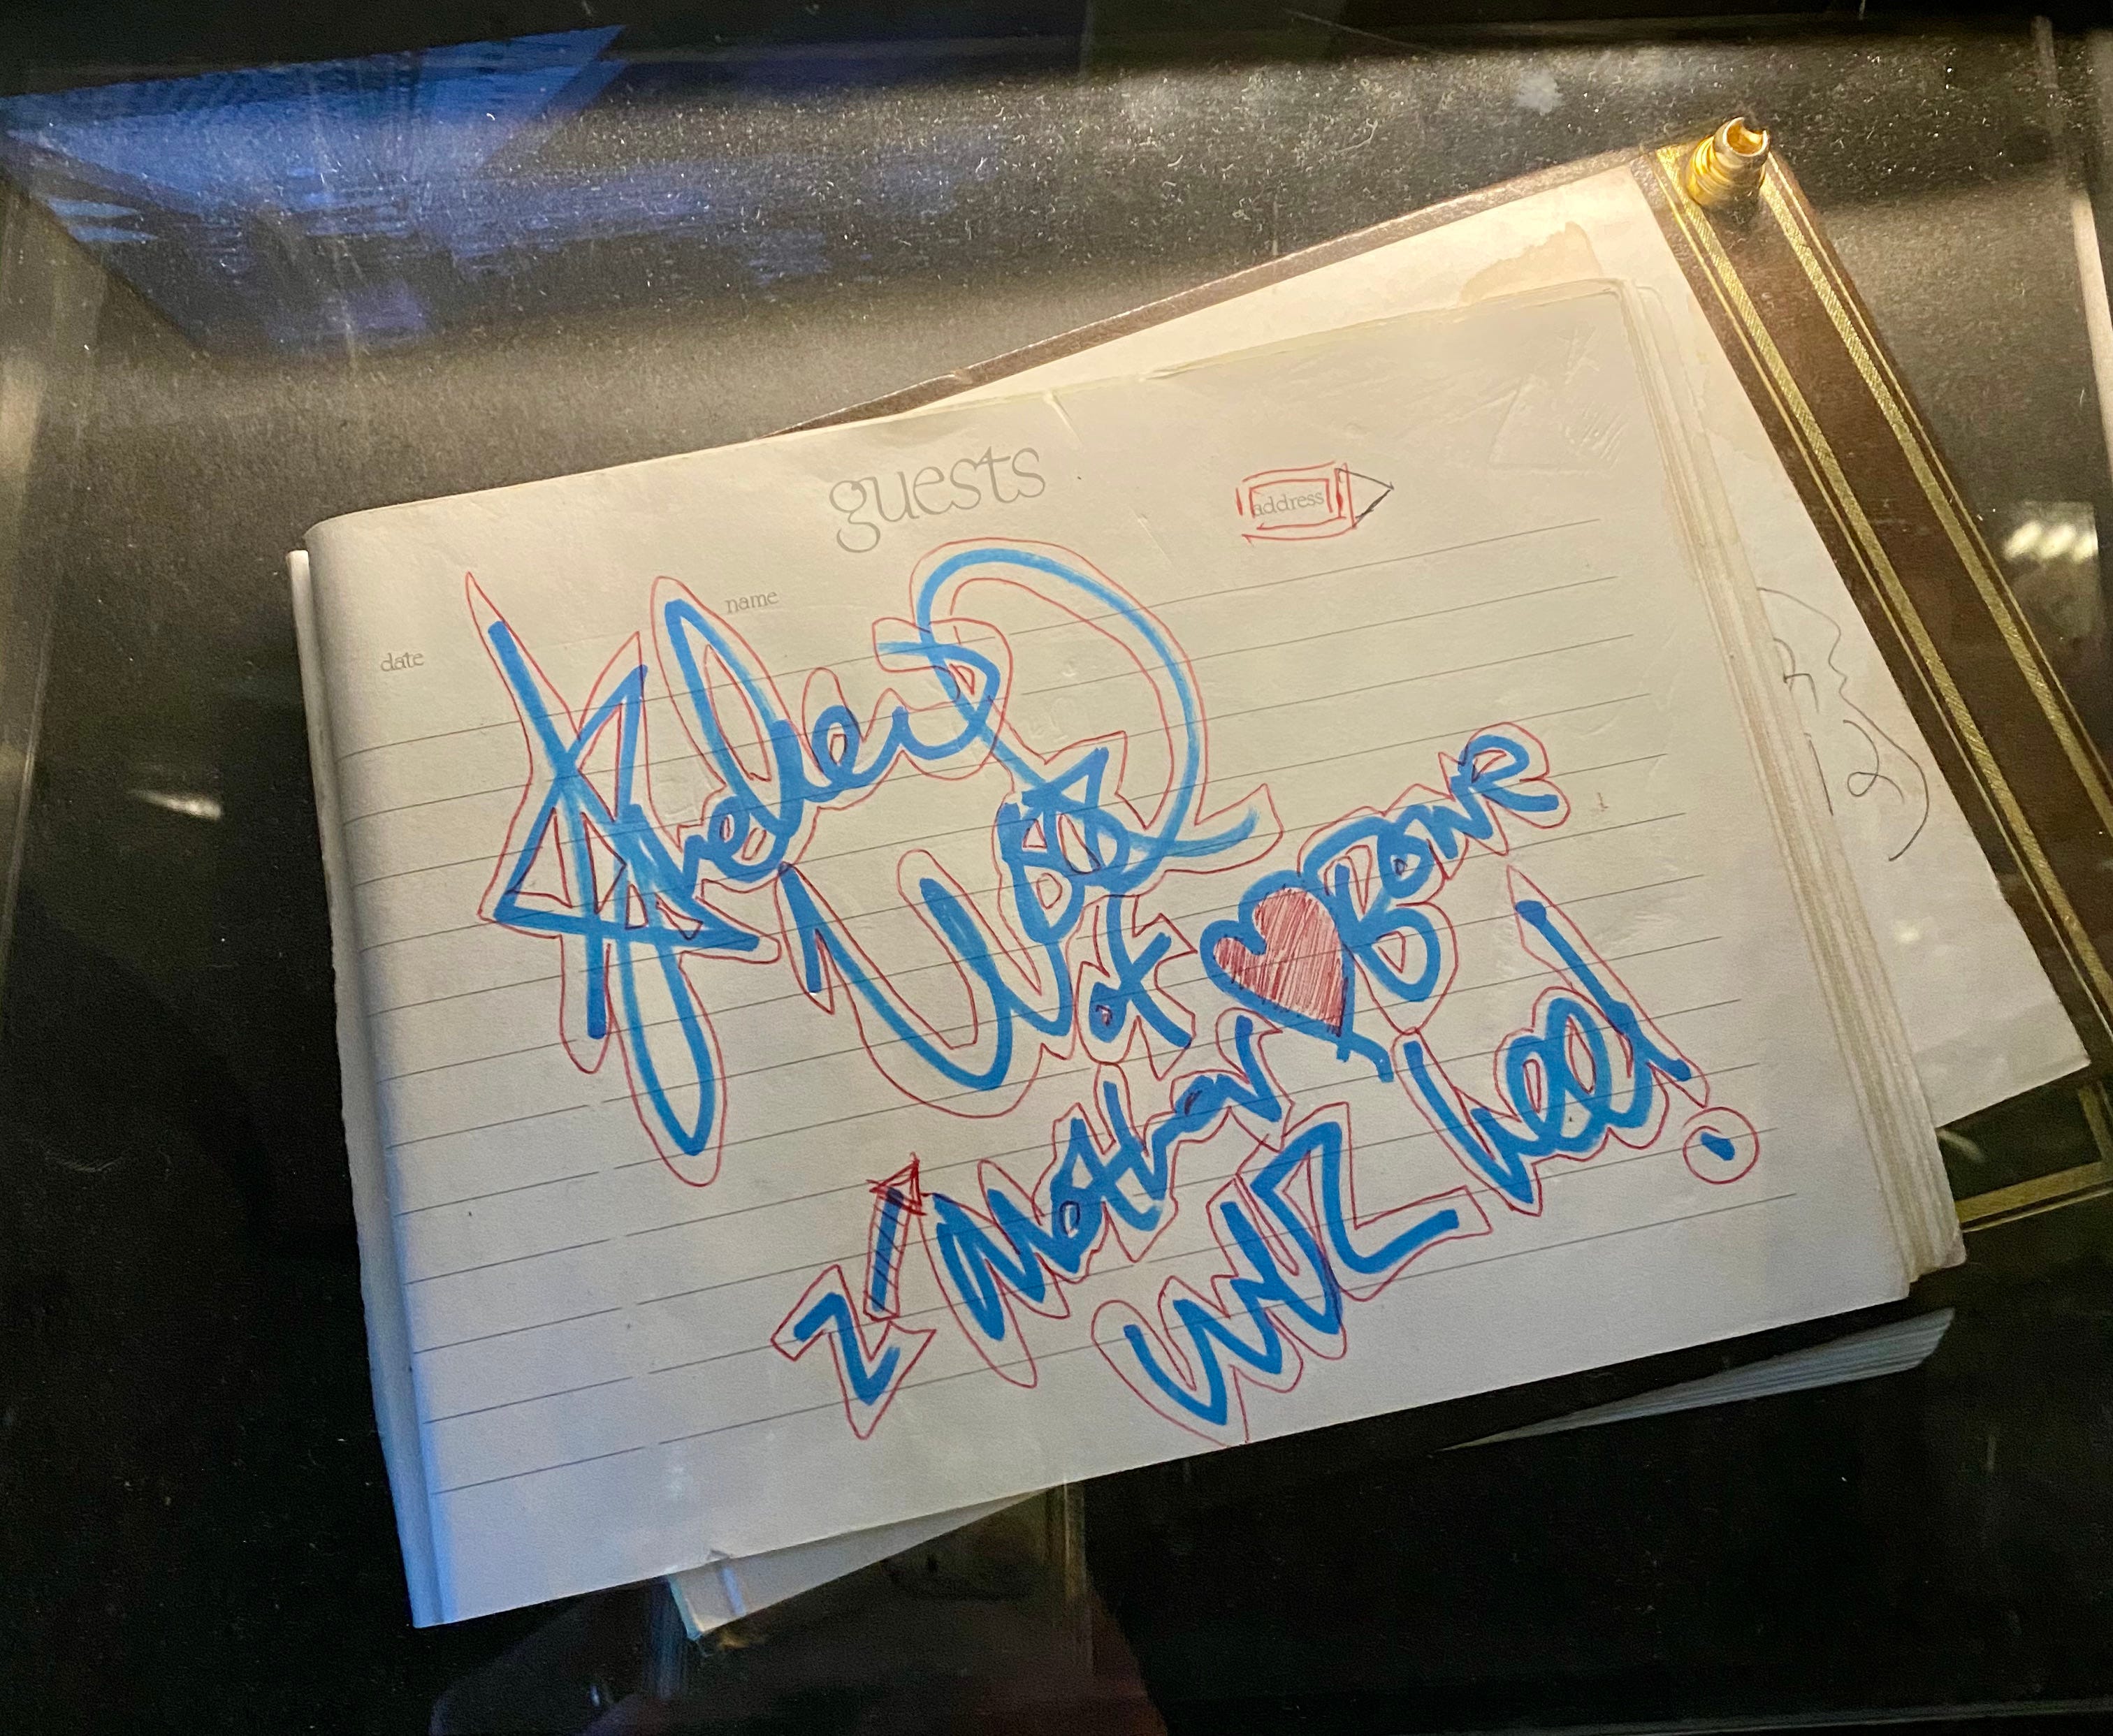 guests
address
name
date
Andrew
Wood
of
Mother ♥ Bone
WUZ here!